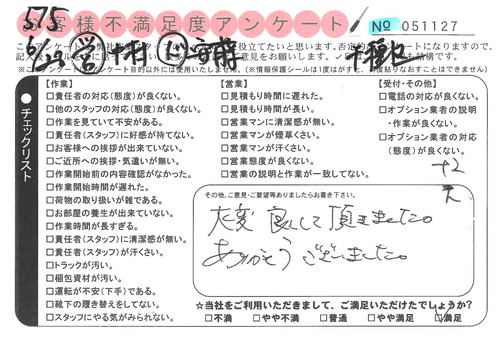 575
お客様不満足度アンケート
No 051127
※ご
【作業】
□責任者の対応(態度)が良くない。
□他のスタッフの対応(態度)が良くない。
□作業を見ていて不安がある。
□責任者(スタッフ)に好感が持てない。
□お客様への挨拶が出来ていない。
□ご近所への挨拶・気遣いが無い。
□作業開始前の内容確認がなかった。
□作業開始時間が遅れた。
□荷物の取り扱いが雑である。
□お部屋の養生が出来ていない。
□作業時間が長すぎる。
□責任者(スタッフ)に清潔感が無い。
□責任者(スタッフ)が汗くさい。
□トラックが汚い。
□梱包資材が汚い。
□運転が不安(下手)である。
□靴下の履き替えをしてない。
□スタッフにやる気がみられない。
【営業】
□見積もり時間に遅れた。
□見積もり時間が長い。
□営業マンに清潔感が無い。
□営業マンが煙草くさい。
□営業マンが汗くさい。
□営業態度が良くない。
□営業の説明と作業が一致してない。
【受付・その他】
□電話の対応が良くない。
□オプション業者の説明
・作業が良くない。
□オプション業者の対応
(態度)が良くない。
チェックリスト
その他、ご意見・ご要望等ありましたらお書き下さい。
大変良くして頂きました。
ありがとうございました。
☆当社をご利用いただきまして、ご満足いただけたでしょうか?
□不満 □やや不満 □普通 □やや満足 □満足